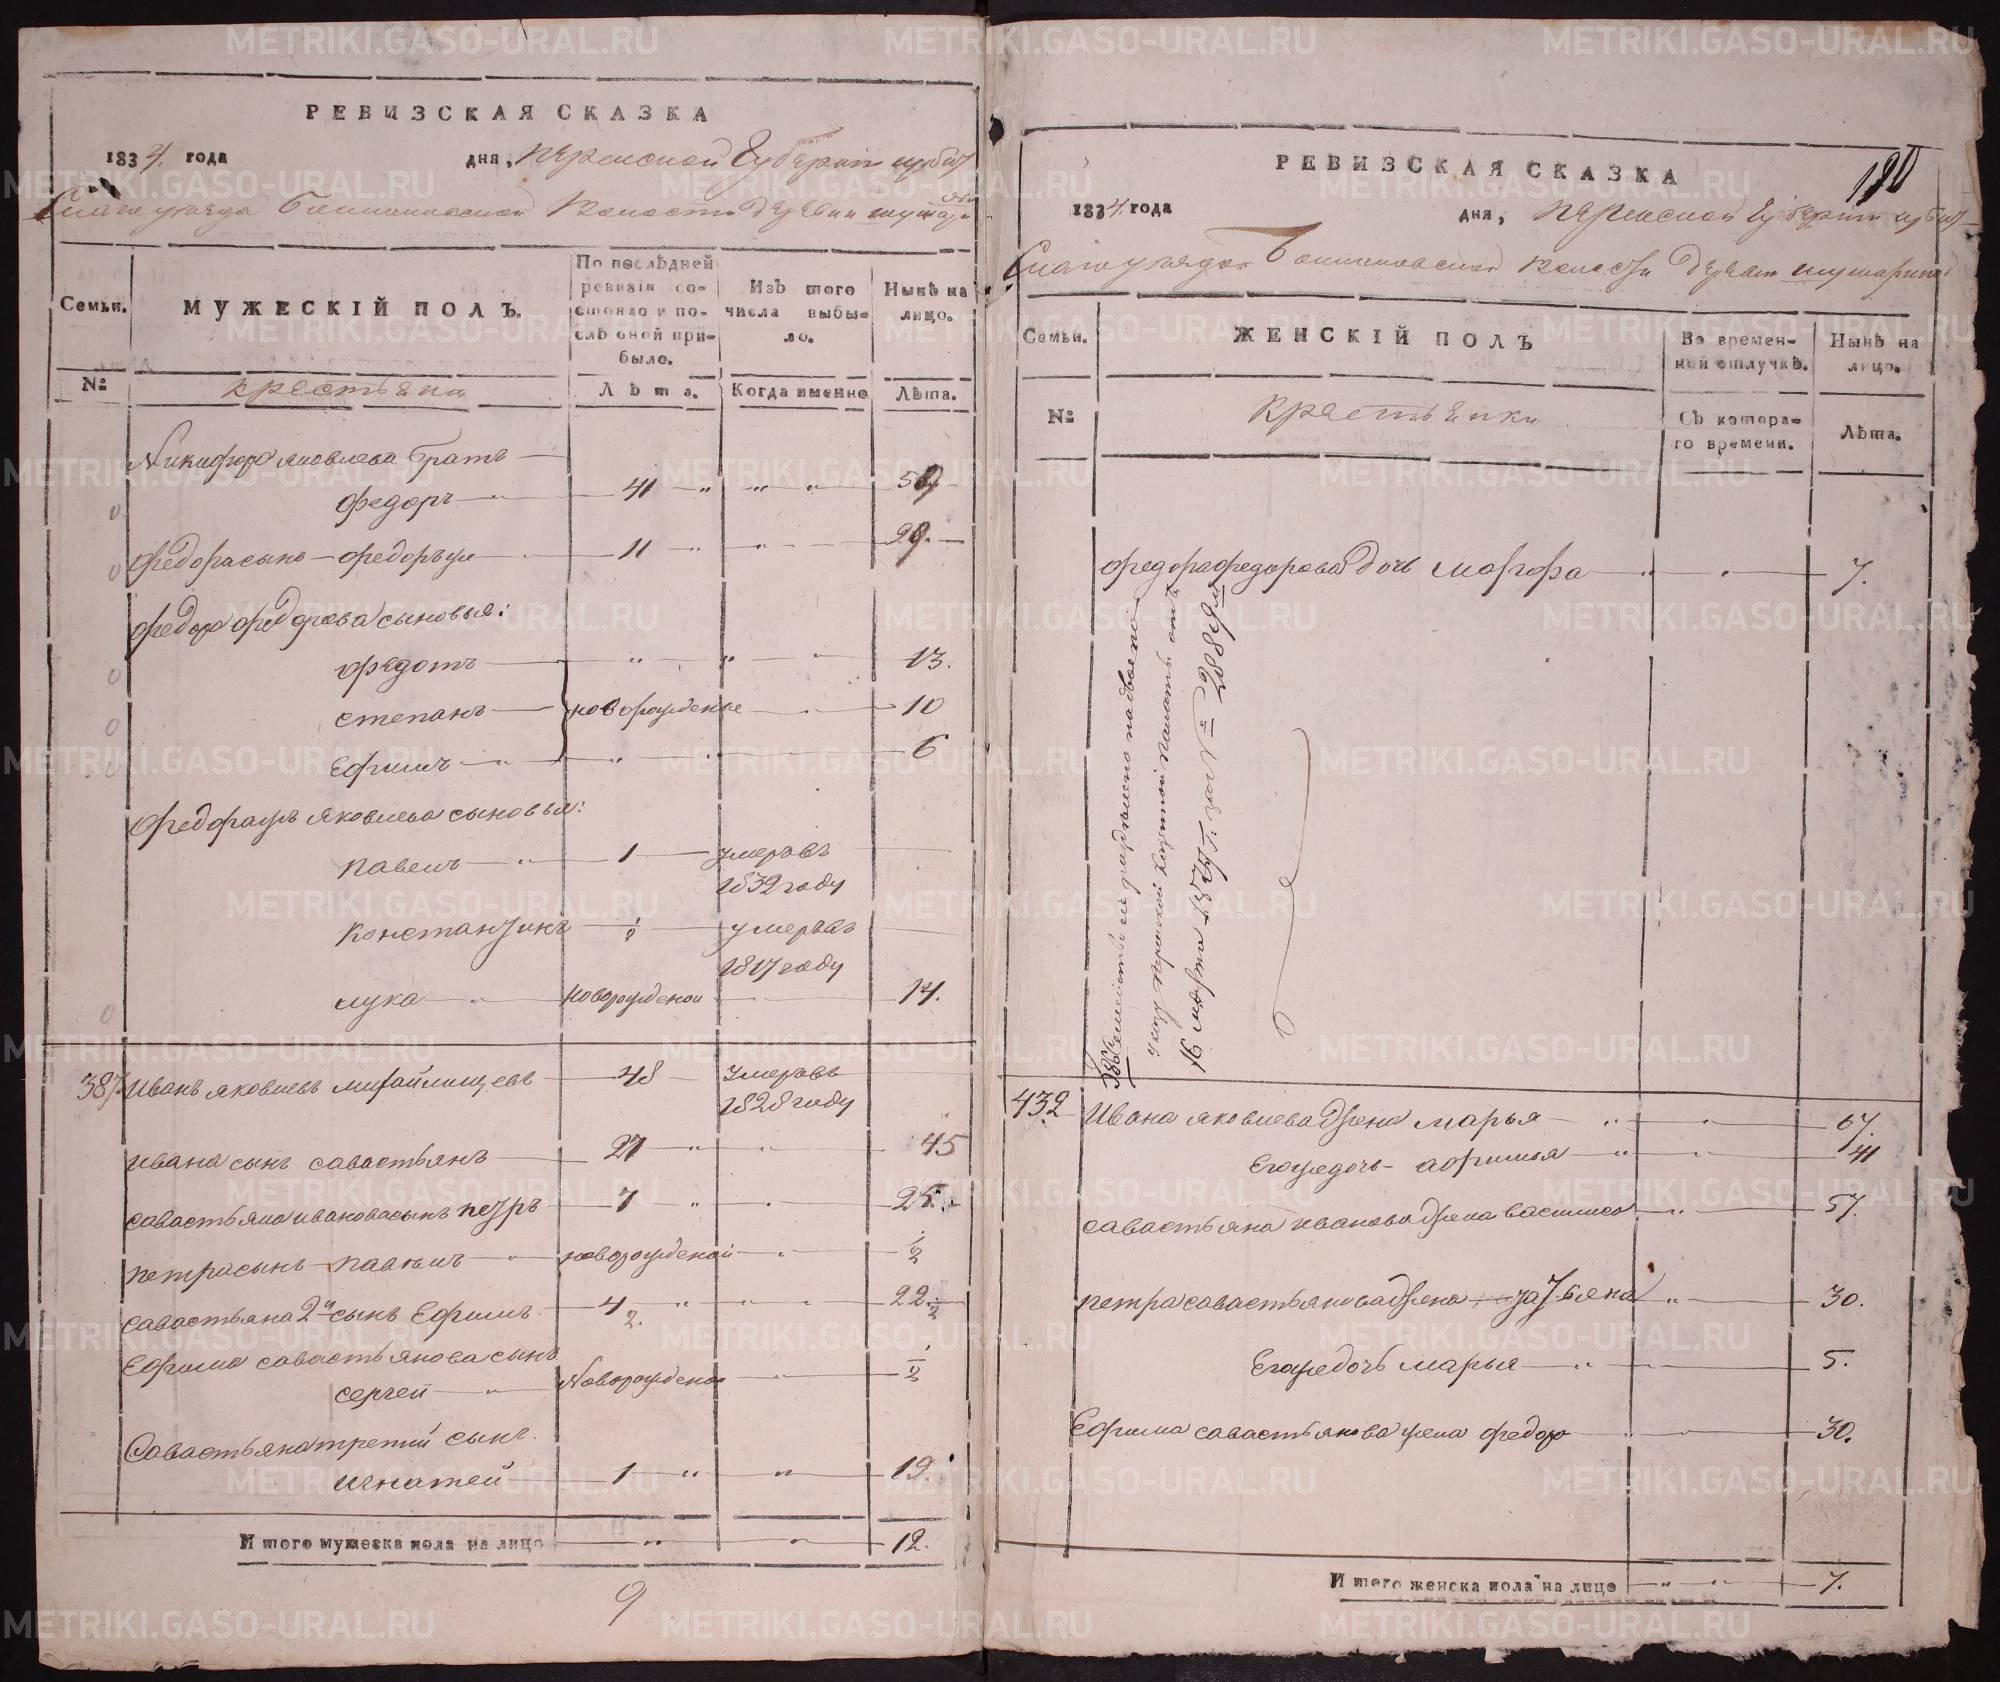 РЕВИЗСКАЯ СКАЗКА
1834. года дня, пермской Губернии ирбит
скаго уезда волости деревни
Семьи.
МУЖЕСКІЙ ПОЛЪ.
По послѣдней ревизіи состояло и послѣ оной прибыло.
Изъ того числа выбыло.
Нынѣ на лицо.
№
крестьяна
Лѣта.
Когда именно
Лѣта.
Никифора яковлева братъ
Федоръ 41 59
Федора сынъ Федоръ 11 29.
Федора Федорова сыновья:
Федотъ 13.
степанъ новорожденые 10
Ефимъ 6
яковлева сыновья:
павелъ 1 умеръ въ
1832 году
Константинъ 1/2 умеръ въ
1817 году
лука новорожденой 14.
387. Иванъ яковлевъ 48 умеръ въ
1828 году
ивана сынъ савастьянъ 27 45
савастьяна иванова сынъ петръ 7 25.
петра сынъ новорожденой 1/2
савастьяна 2й сынъ Ефимъ 4 1/2. 22 1/2
Ефима савастьянова сынъ
сергей Новорожденой 1/2
Савастьяна третий сынъ
игнатей 1 19.
Итого мужеска пола на лицо 12.
9
РЕВИЗСКАЯ СКАЗКА
190
1834. года дня, пермской Губернии ирбит
скаго уезда волости деревни
Семьи.
ЖЕНСКІЙ ПОЛЪ
Во временной отлучкѣ.
Нынѣ на лицо.
№
крестьянки
Съ котораго времени.
Лѣта.
Федора Федорова дочь марфа 7.
386 семейство разделено на двое по
указу пермской казенной палаты отъ
16 марта за №
432 Ивана яковлева жена марья 67
Его же дочь афимья 41
савастьяна иванова жена василиса 57.
петра савастьянова жена татьяна 30.
Его же дочь марья 5.
Ефима савастьянова жена федора 30.
Итого женска пола на лицо 7.
METRIKI.GASO-URAL.RU